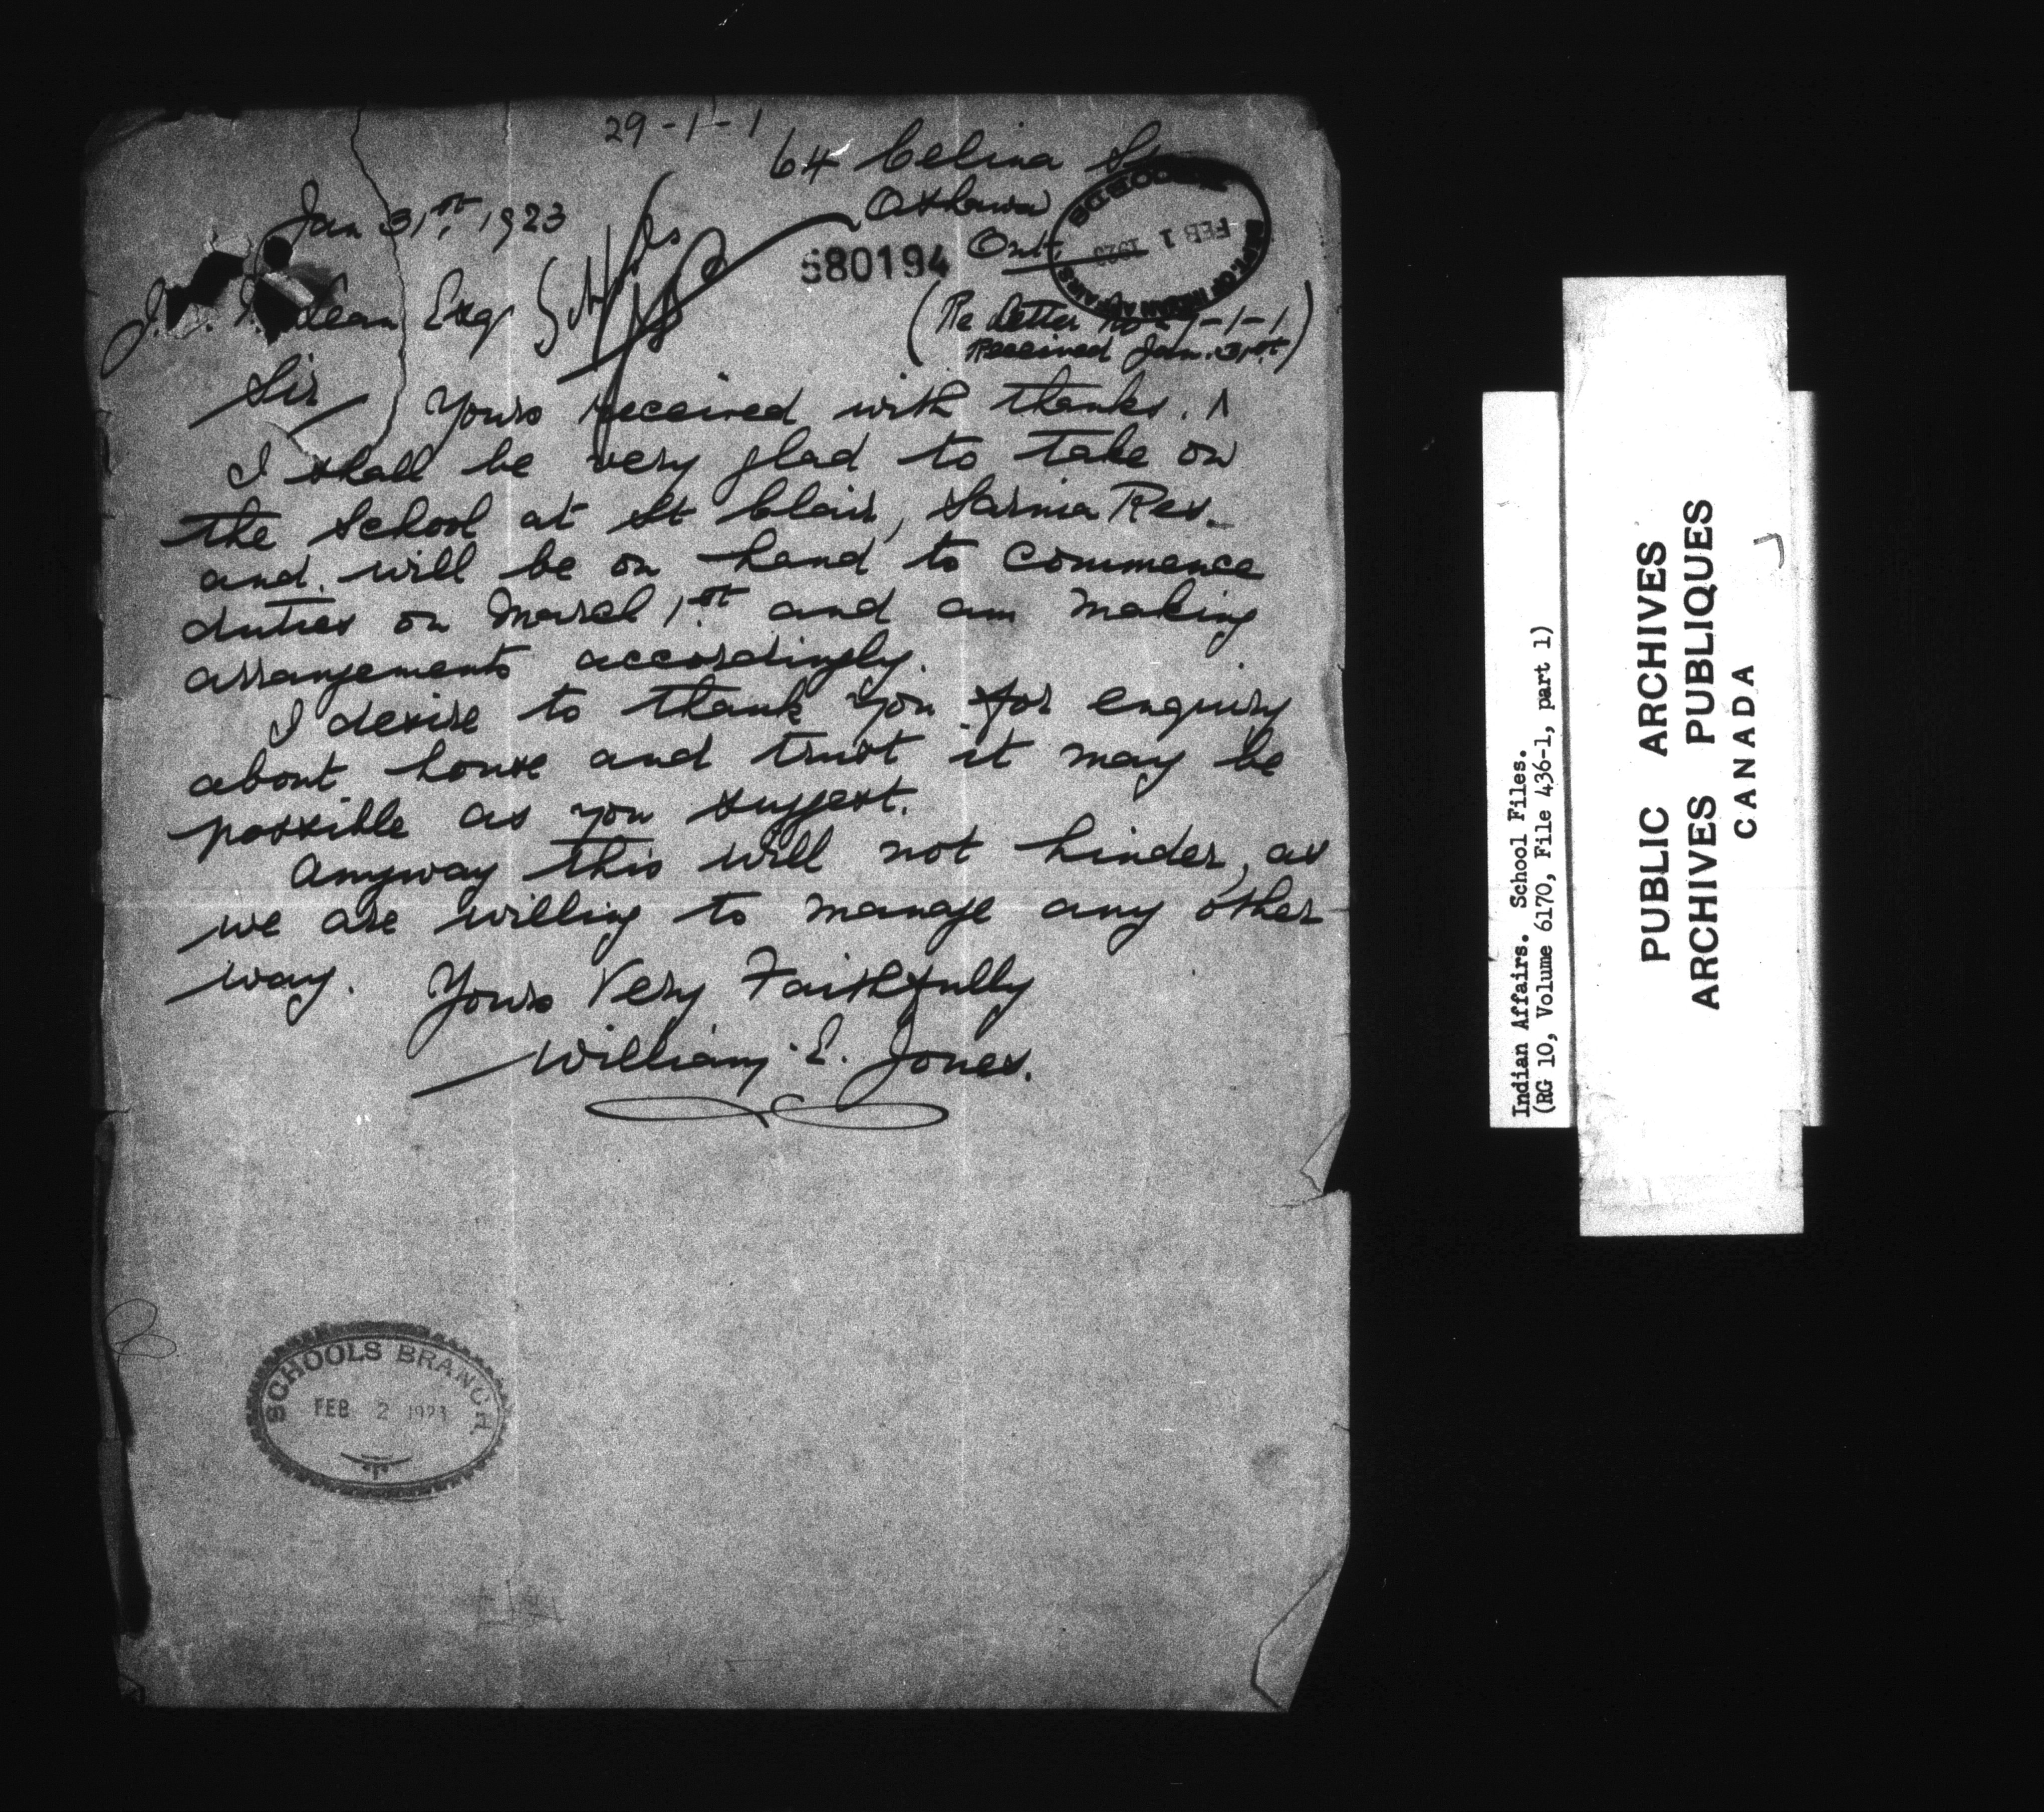 29-1-1
64 Celina St
Oshawa
Ont.
Jan 31st, 1923
580194
DEPT. OF INDIAN AFFAIRS
FEB 1 1923
J. Lean Esq
(Re Letter No 29-1-1
Received Jan. 31st.)
Sir
Yours received with thanks.
I shall be very glad to take on
the School at St Clair, Sarnia Res.
and will be on hand to commence
duties on March 1st and am making
arrangements accordingly.
I desire to thank you for enquiry
about house and trust it may be
possible as you suggest.
Anyway this will not hinder, as
we are willing to manage any other
way.
Yours Very Faithfully
William E. Jones.
SCHOOLS BRANCH
FEB 2 1923
Indian Affairs. School Files.
(RG 10, Volume 6170, File 436-1, part 1)
PUBLIC ARCHIVES
ARCHIVES PUBLIQUES
CANADA